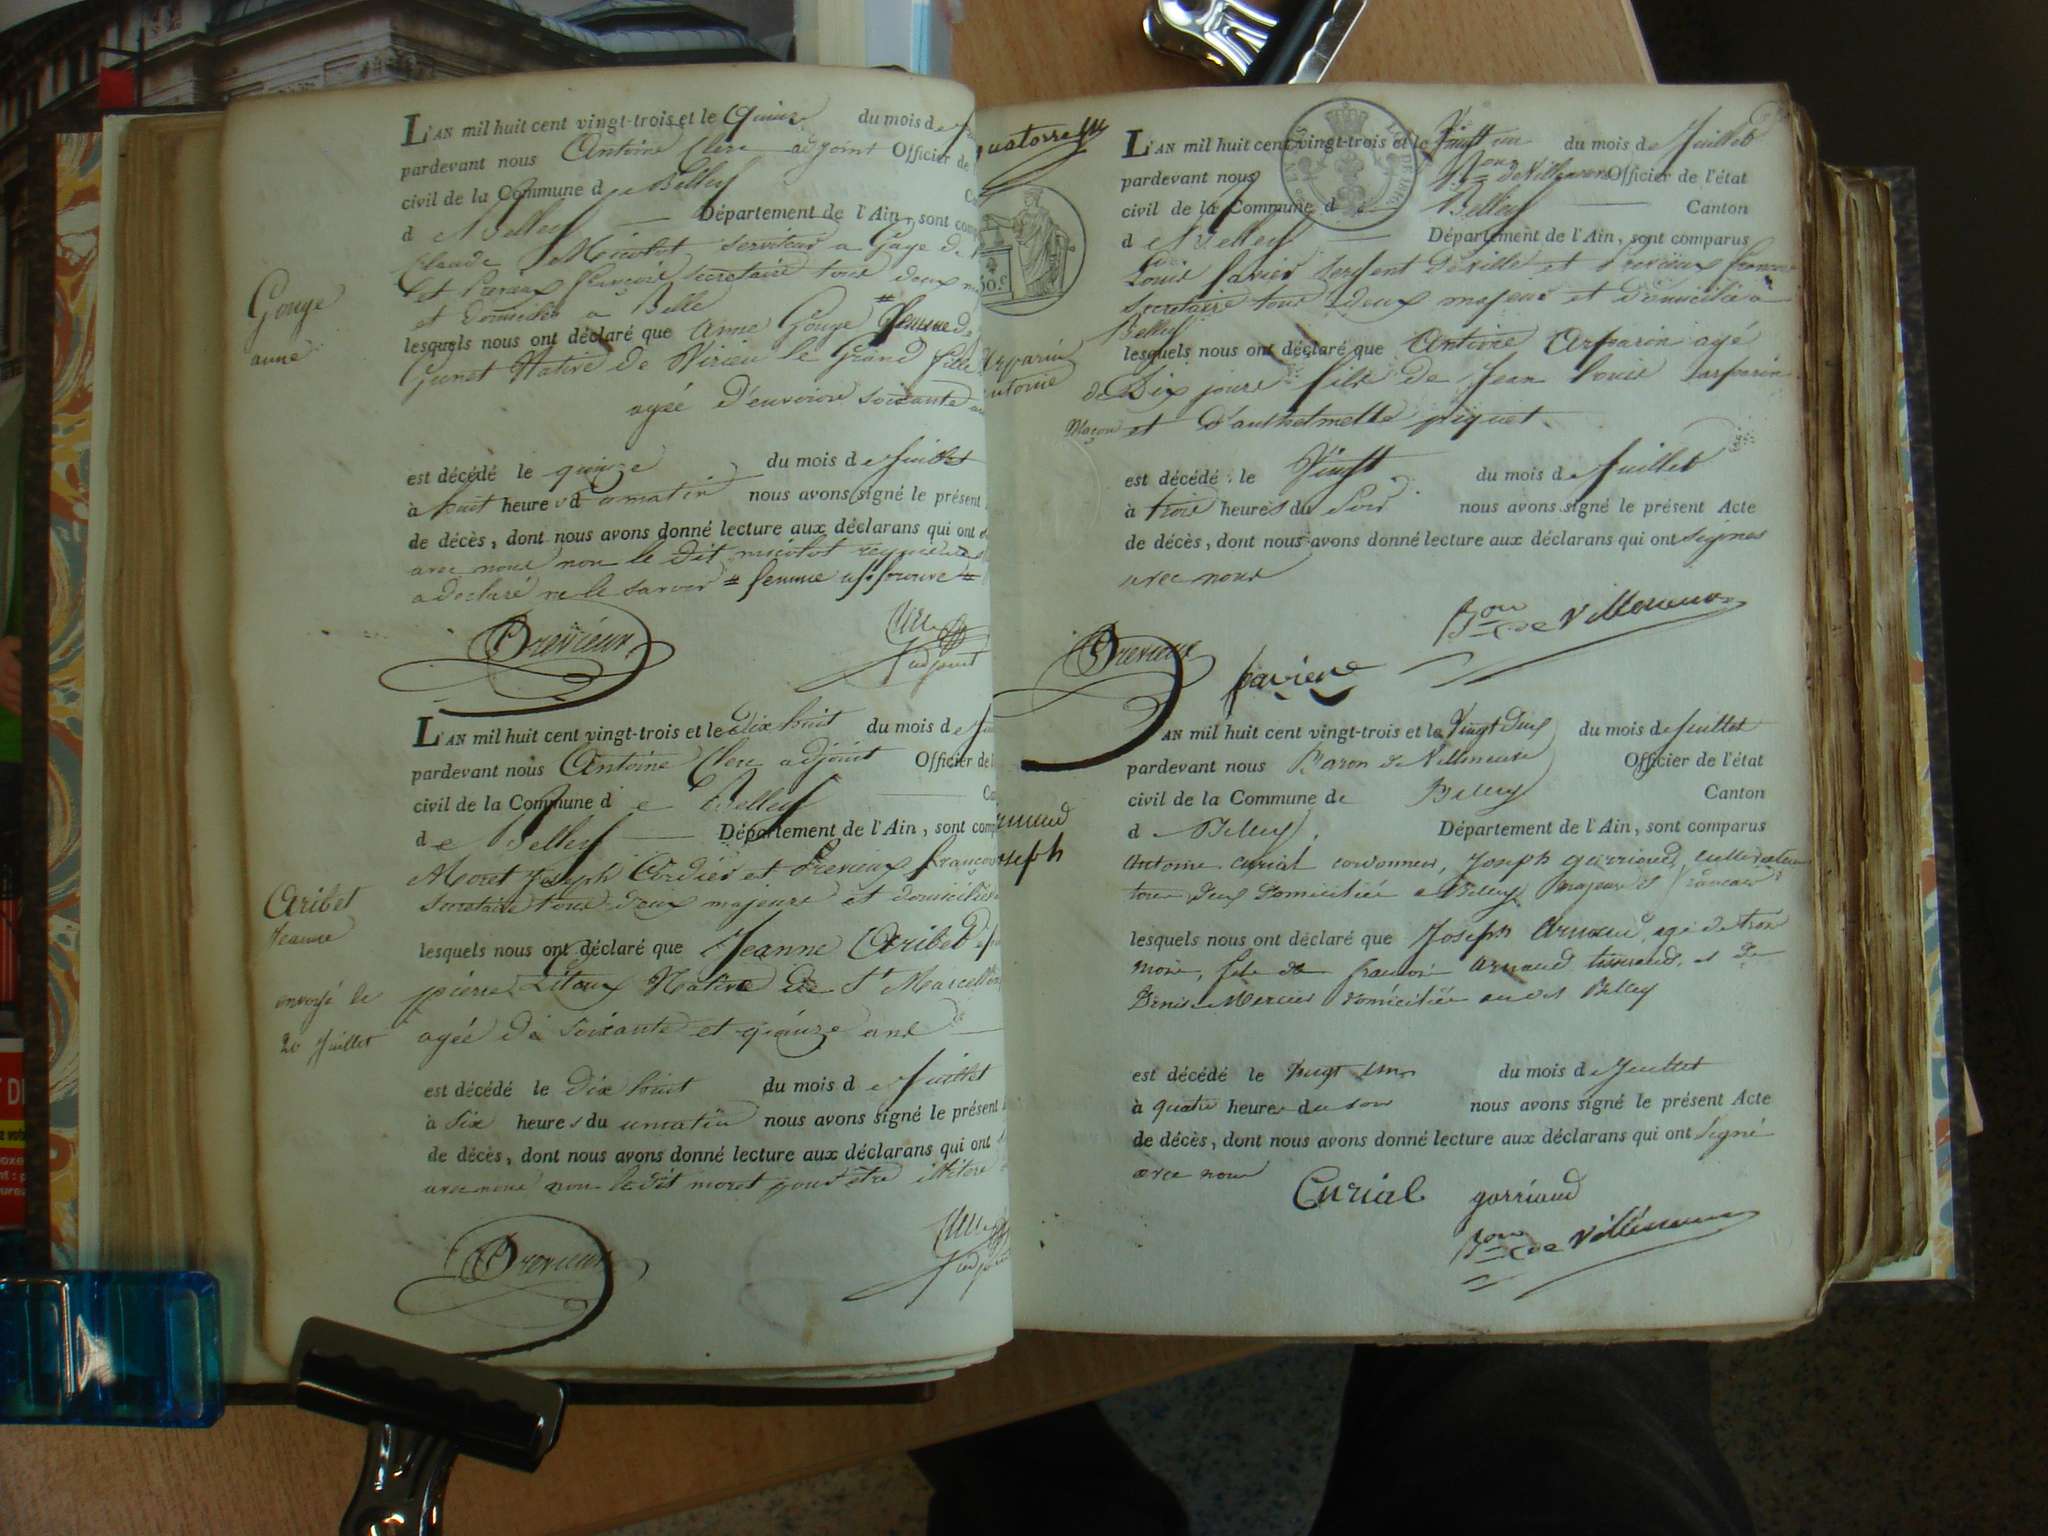 L'AN mil huit cent vingt-trois et le quinze du mois de
pardevant nous Antoine Clerc adjoint Officier de
civil de la Commune de Belley
de Belley Département de l'Ain, sont comp
Claude Micolot serviteur a Gage de
et Previeux françois secretaire tous deux
et domicilié a Belle
lesquels nous ont déclaré que anne Gouge # femme de
Gunet Native de Virieu le Grand fille
agée d'environ soixante
est décédé le quinze du mois de juillet
à huit heures du matin nous avons signé le présent
de décès, dont nous avons donné lecture aux déclarans qui ont
avec nous non le dit micolot requis
a declaré ne le savoir # femme
Previeux
Clerc
adjoint
Gouge
anne
L'AN mil huit cent vingt-trois et le dix huit du mois de
pardevant nous Antoine Clerc adjoint Officier de l
civil de la Commune de Belley
de Belley Département de l'Ain, sont comp
Moret Joseph Cordier et Previeux françois
secretaire tous deux majeurs et domiciliés
lesquels nous ont déclaré que Jeanne Aribet
pierre Native de St Marcel
agée de soixante et quinze ans
est décédé le dix huit du mois de juillet
à six heures du matin nous avons signé le présent
de décès, dont nous avons donné lecture aux déclarans qui ont
avec nous non le dit moret pour être illitere
Previeux
Clerc
adjoint
Aribet
Jeanne
envoyé le
20 Juillet
quatorze
L'AN mil huit cent vingt-trois et le Vingt un du mois de Juillet
pardevant nous Bon de Villeneuve Officier de l'état
civil de la Commune de Belley Canton
de Belley Département de l'Ain, sont comparus
Louis favier sergent de ville et Previeux françois
secretaire tous deux majeur et domicilié a
Belley
lesquels nous ont déclaré que Antoine Arparin agé
de Dix jours fils de Jean Louis arparin
Maçon et d'anthelmette piquet.
est décédé le Vingt du mois de Juillet
à trois heures du Soir nous avons signé le présent Acte
de décès, dont nous avons donné lecture aux déclarans qui ont signes
avec nous
Bon de Villeneuve
Previeux
favier
Arparin
antoine
AN mil huit cent vingt-trois et le Vingt deux du mois de juillet
pardevant nous Baron de Villeneuve Officier de l'état
civil de la Commune de Belley Canton
de Belley. Département de l'Ain, sont comparus
Antoine Curial cordonnier, Joseph garriaud, cultivateur
tous deux domiciliés a Belley majeurs et francais
lesquels nous ont déclaré que Joseph Arnaud, agé de trois
mois, fils de francois arnaud tisserand, et de
Denise Mercier domiciliée au dit Belley
est décédé le vingt un du mois de Juillet
à quatre heures du soir nous avons signé le présent Acte
de décès, dont nous avons donné lecture aux déclarans qui ont signé
avec nous
Curial garriaud
Bon de Villeneuve
Joseph